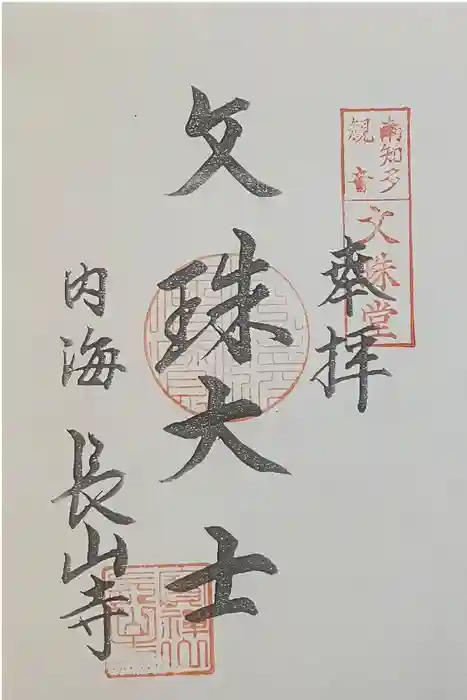 南知多
観音
文殊堂
奉拝
文殊大士
内海 長山寺